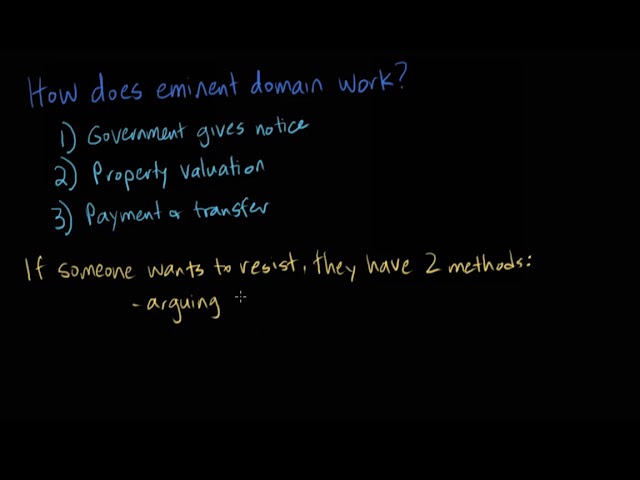 How does eminent domain work?
1) Government gives notice
2) Property valuation
3) Payment & transfer
If someone wants to resist, they have 2 methods:
- arguing